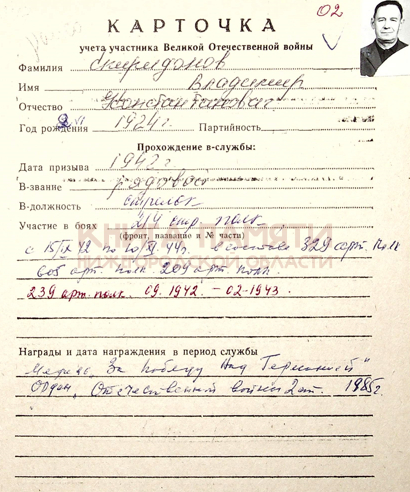 02
КАРТОЧКА
учета участника Великой Отечественной войны
Фамилия Спиридонов
Имя Владимир
Отчество Константинович
Год рождения 1924 г Партийность
Прохождение в-службы:
Дата призыва 1942 г.
В-звание рядовой
В-должность стрелок
Участие в боях 214 стр. полк
(фронт, название и № части)
КНИГА ПАМЯТИ
НИЖЕГОРОДСКОЙ ОБЛАСТИ
с 15/X 42 по 44 г. в составе 329 арт. полк
605 арт. полк 209 арт. полк.
239 арт. полк. 09.1942. – 02-1943.
Награды и дата награждения в период службы
Медаль "За победу над Германией"
Орден Отечественной войны 2 ст. 1985 г